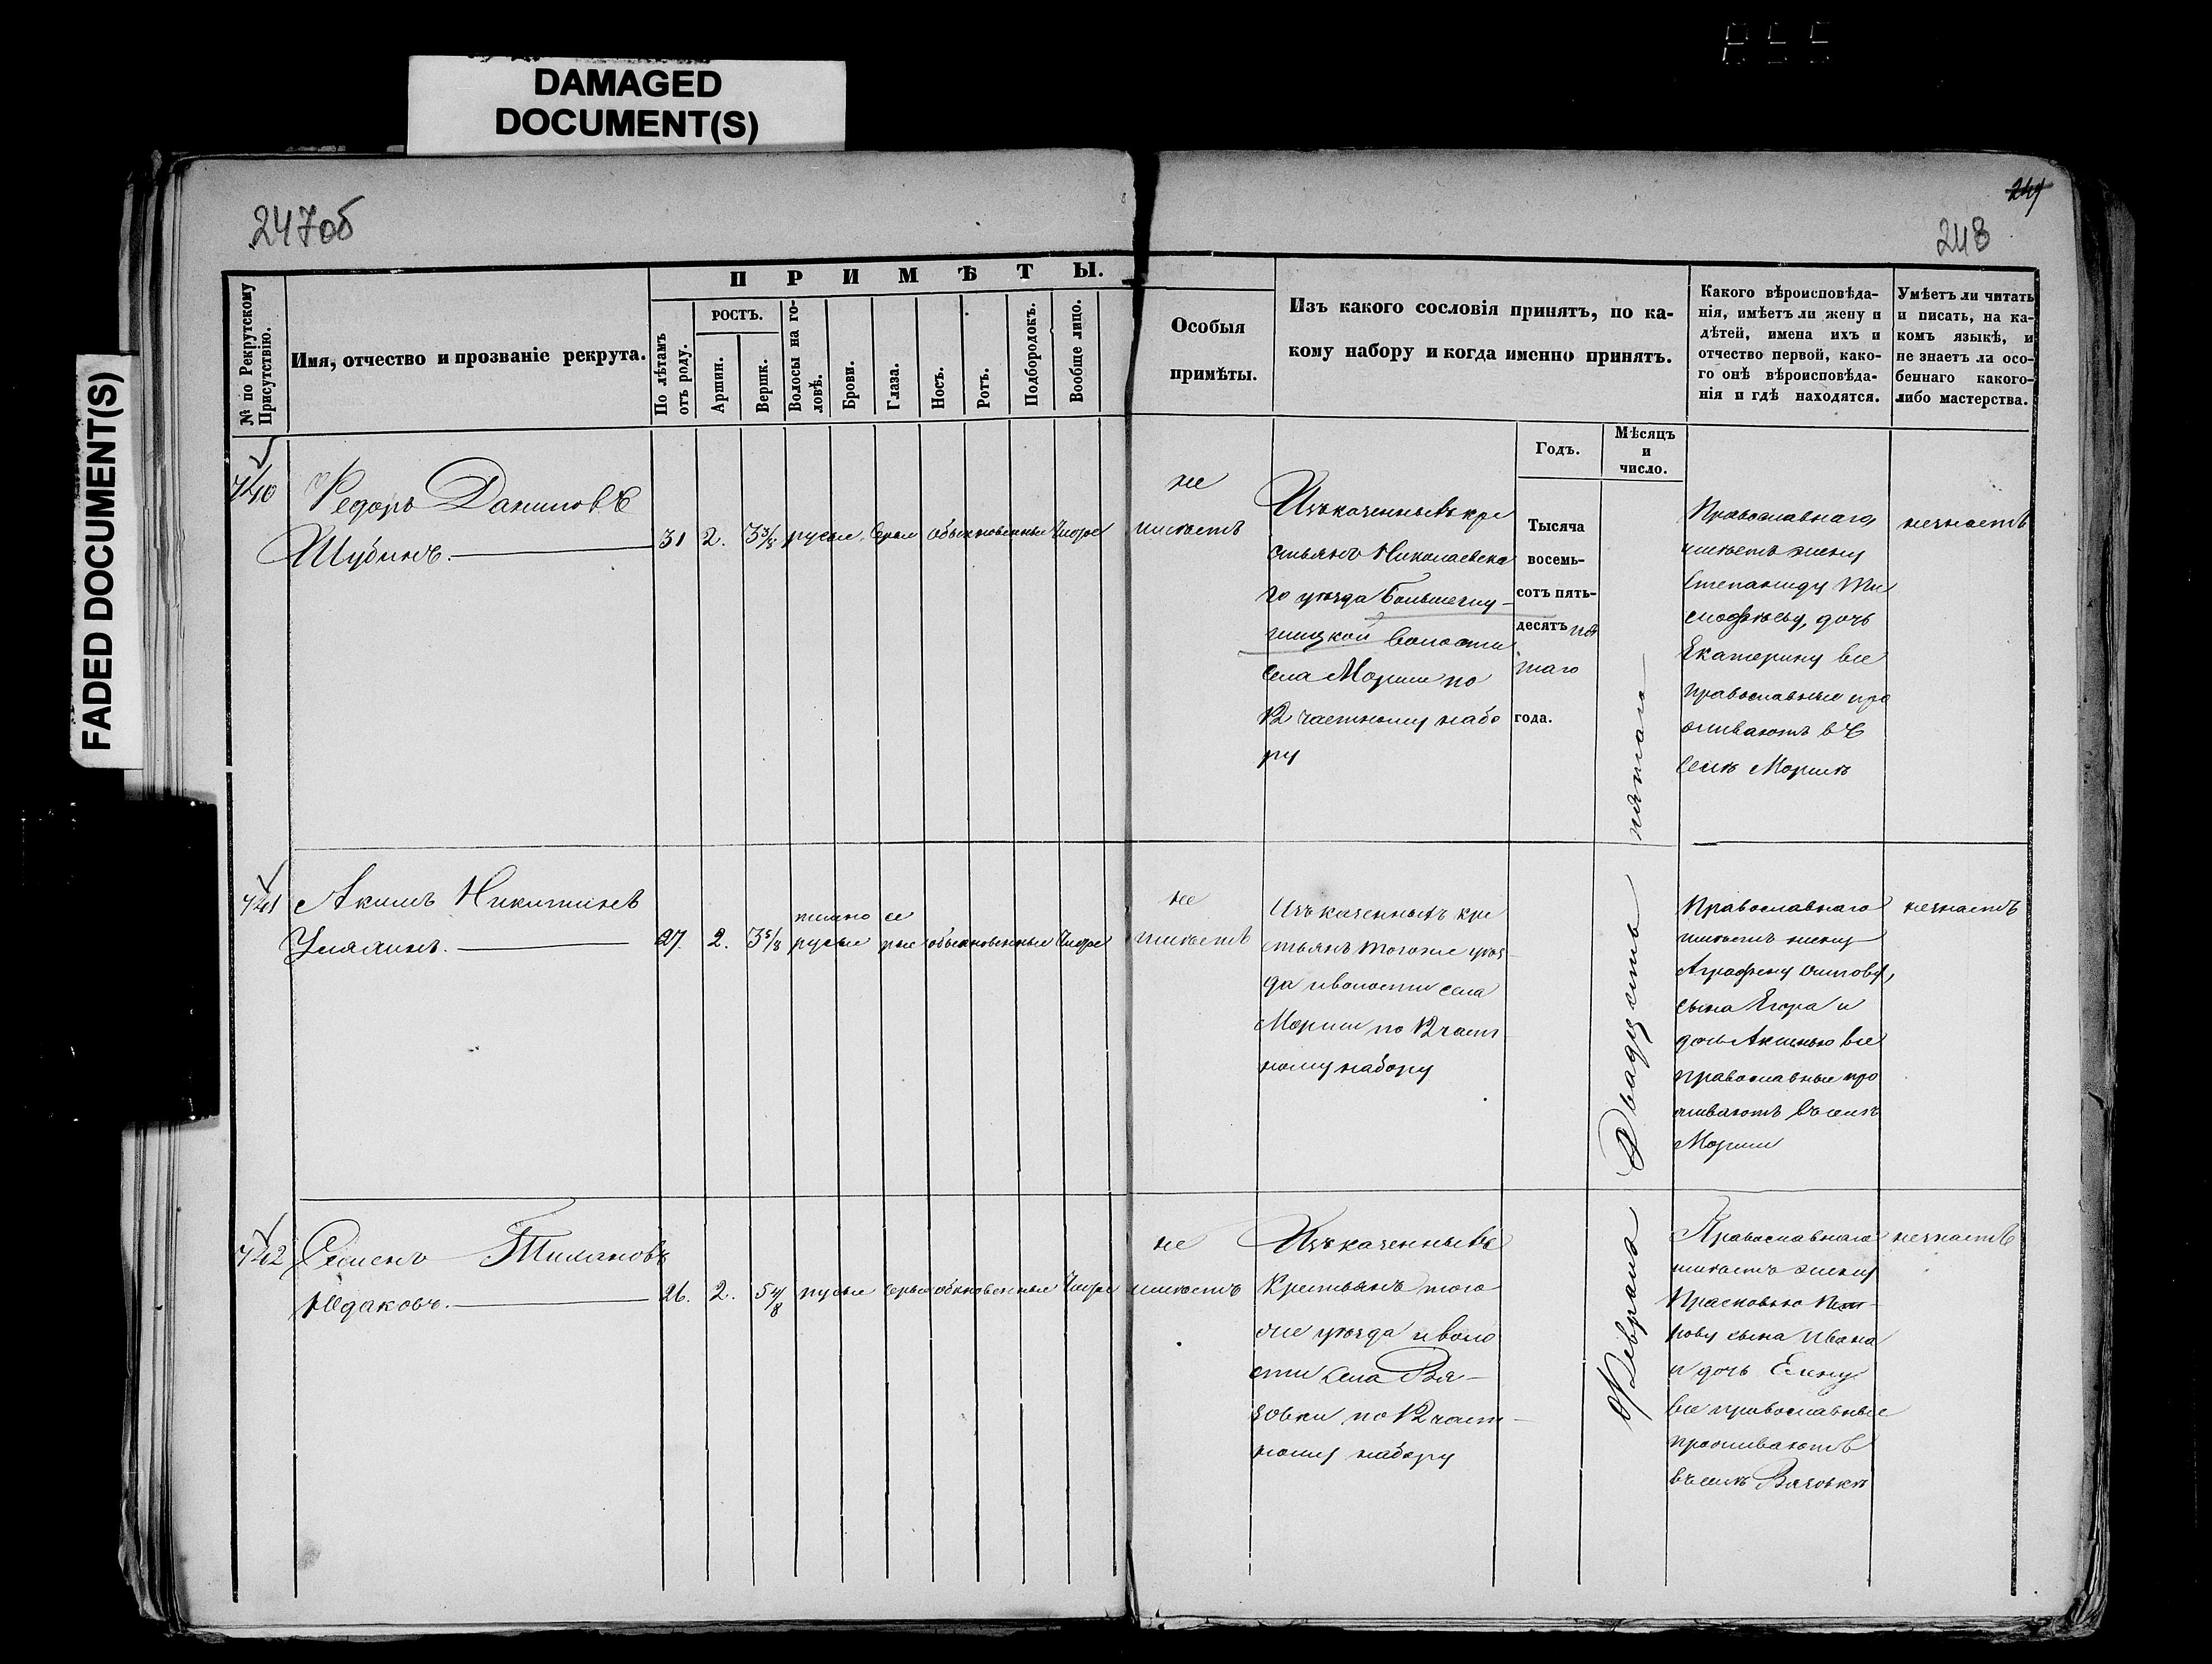 DAMAGED
DOCUMENT(S)
FADED DOCUMENT(S)
247об
248
№ по Рекрутскому Присутствію.
Имя, отчество и прозваніе рекрута.
ПРИМѢТЫ.
По лѣтамъ отъ роду.
РОСТЪ.
Аршин.
Вершк.
Волосы на го-
ловѣ.
Брови.
Глаза.
Носъ.
Ротъ.
Подбородокъ.
Вообще лицо.
Особыя
примѣты.
Изъ какого сословія принятъ, по ка-
кому набору и когда именно принятъ.
Годъ.
Мѣсяцъ
и
число.
Какого вѣроисповѣда-
нія, имѣетъ ли жену и
дѣтей, имена ихъ и
отчество первой, како-
го онѣ вѣроисповѣда-
нія и гдѣ находятся.
Умѣетъ ли читать
и писать, на ка-
комъ языкѣ, и
не знаетъ ли осо-
беннаго какого-
либо мастерства.
740
Федоръ Даниловъ
Шубинъ.
31 2. 3 3/8 русые серые обыкновенные чистое
не
имѣетъ
Изъ казенныхъ кре
стьянъ Николаевска
го уѣзда Большеглу-
шицкой волости
села Морши по
12 частному набо
ру
Тысяча
восемь-
сотъ пять-
десятъ пя
таго
года.
Февраля Двадцать пятаго
Православнаго
имѣетъ жену
Степаниду Ти
мофѣеву, дочь
Екатерину все
православные про
живаютъ въ
селѣ Моршѣ
незнаетъ
741
Акимъ Никитинъ
27. 2. 3 5/8 темно русые се рые обыкновенные чистое
не
имѣетъ
Изъ казенныхъ кре
стьянъ тогоже уѣз-
да и волости села
Морши по 12 част
ному набору
Православнаго
имѣетъ жену
Аграфену
сына Егора и
дочь Аксинью все
православные про
живаютъ въ селѣ
Морши
незнаетъ
742
Семенъ
Юдаковъ.
26. 2. 5 4/8 русые серые обыкновенные чистое
не
имѣетъ
Изъ казенныхъ
Крестьянъ того
же уѣзда и воло
сти села Вя-
зовки по 12 част-
ному набору
Православнаго
имѣетъ жену
Прасковью Пет-
рову сына Ивана
и дочь Елену
все православные
проживаютъ
въ селѣ Вязовкѣ
незнаетъ